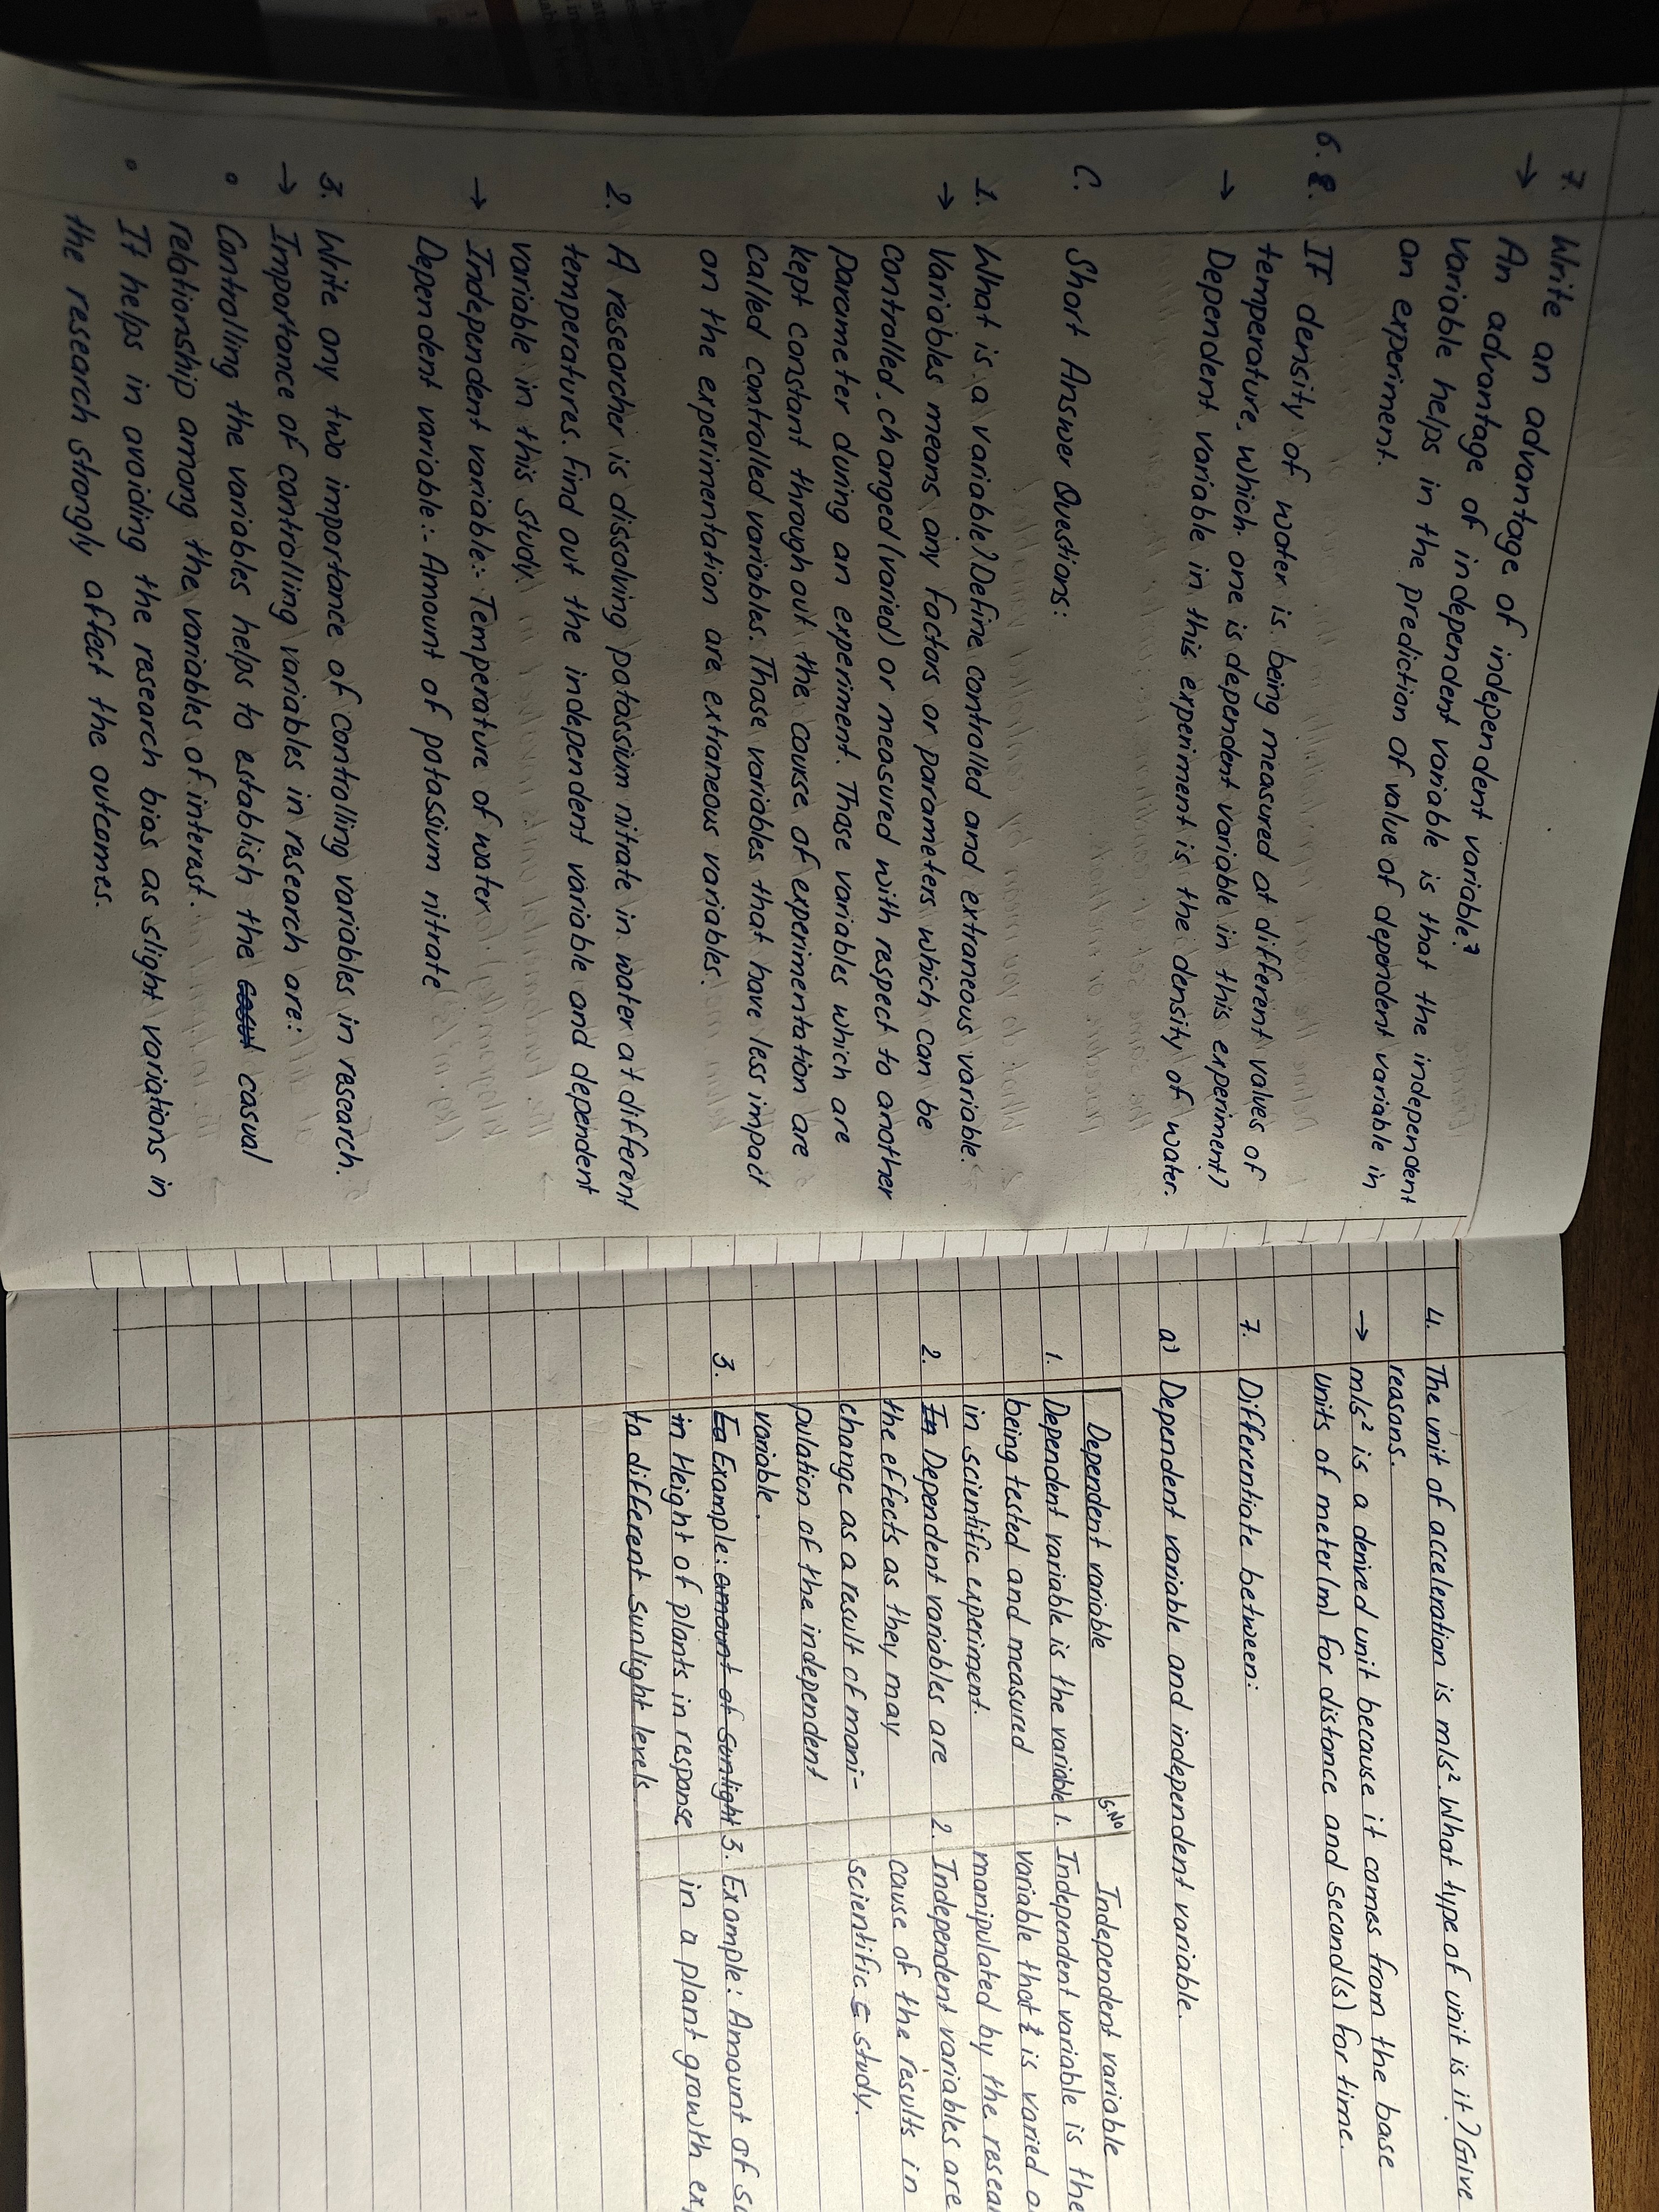 7. Write an advantage of independent variable?
→ An advantage of independent variable is that the independent
variable helps in the prediction of value of dependent variable in
an experiment.
6. If density of water is being measured at different values of
temperature, which one is dependent variable in this experiment?
→ Dependent variable in this experiment is the density of water.
C. Short Answer Questions:
1. What is a variable? Define controlled and extraneous variable.
→ Variables means any factors or parameters which can be
controlled, changed (varied) or measured with respect to another
parameter during an experiment. Those variables which are
kept constant throughout the course of experimentation are
called controlled variables. Those variables that have less impact
on the experimentation are extraneous variables.
2. A researcher is dissolving potassium nitrate in water at different
temperatures. Find out the independent variable and dependent
variable in this study.
→ Independent variable:- Temperature of water
Dependent variable:- Amount of potassium nitrate
3. Write any two importance of controlling variables in research.
→ Importance of controlling variables in research are:
• Controlling the variables helps to establish the casual
relationship among the variables of interest.
• It helps in avoiding the research bias as slight variations in
the research strongly affect the outcomes.
4. The unit of acceleration is m/s². What type of unit is it? Give
reasons.
→ m/s² is a derived unit because it comes from the base
units of meter(m) for distance and second(s) for time.
7. Differentiate between:
a) Dependent variable and independent variable.
Dependent variable S.No Independent variable
1. Dependent variable is the variable 1. Independent variable is the
being tested and measured variable that is varied o
in scientific experiment. manipulated by the resear
2. Dependent variables are 2. Independent variables are
the effects as they may cause of the results in
change as a result of mani- scientific study.
pulation of the independent
variable.
3. Example: amount of sunlight 3. Example: Amount of su
in Height of plants in response in a plant growth ex
to different sunlight levels